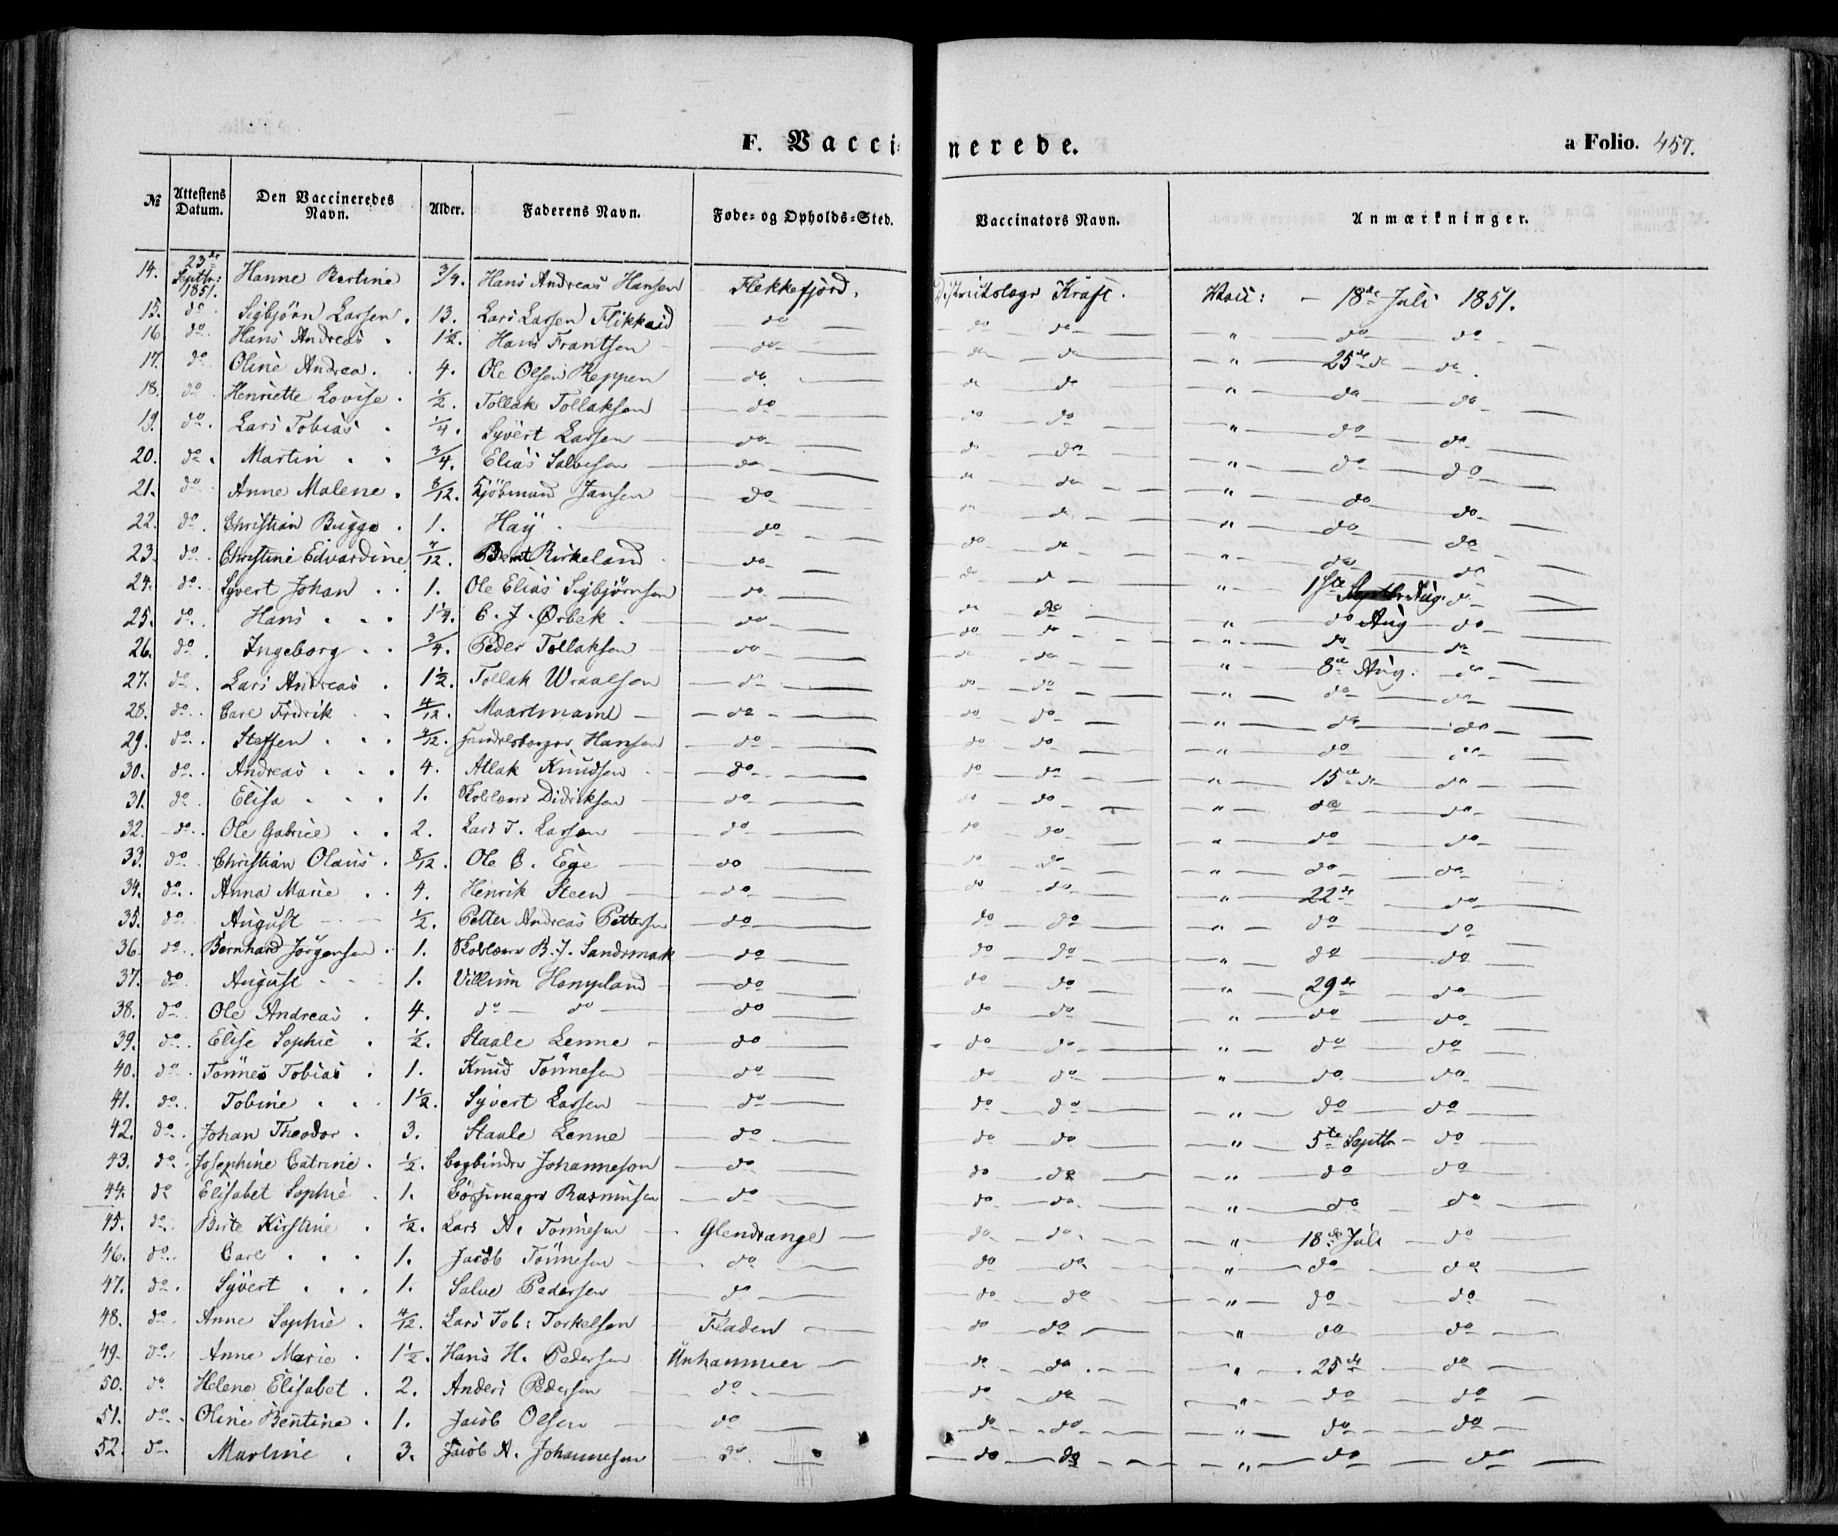 F. Vaccinerede.
a Folio. 457.
№ Attestens Datum. Den Vaccineredes Navn. Alder. Faderens Navn. Føde- og Opholds-Sted. Vaccinators Navn. Anmærkninger.
14. 23de Septbr: 1851. Hanne Bertine 3/4. Hans Andreas Hansen Flekkefjord. Distrikslæge Kraft. Vacc: - 18de Juli 1851.
15. do Sigbjörn Larsen. 13. Lars Larsen Flikkeid do do do " do do
16. do Hans Andreas. 1½. Hans Frantsen do do do " 25de do do
17. do Oline Andrea. 4. Ole Olsen Reppen do do do " do do
18. do Henriette Lovise. ½. Tollak Tollaksen do do do " do do
19. do. Lars Tobias. ¼. Syvert Larsen do do do " do do
20. do. Martin 3/4. Elias Salvesen do do do " do do
21. do Anne Malene. 8/12. Kjöbmand Jansen do do do " do do
22. do. Christian Bugge. 1. Hay do do do " do do
23. do. Christine Edvardine 4/12. Bernt Kirkeland do do do " 1ste Aug. do
24. do. Syvert Johan 1. Ole Elias Sigbjörnsen do do do " do Aug do
25. do. Hans 1¼. C. J. Örbek. do do do " do do
26. do. Ingeborg 3/4. Peder Tollaksen do do do " 8de Aug. do
27. do. Lars Andreas. 1½. Tollak Wraalsen do do do " do do
28. do. Carl Fredrik 4/12. Maartmann do do do " do do
29. do. Steffen 4/12. Hansen do do do " do do
30. do. Andreas 4. Atlak Knudsen do do do " 15de do do
31. do Elisa 1. Didriksen do do do " do do
32. do. Ole Gabriel 2. Lars T. Larsen do do do " do do
33. do. Christian Olaus. 8/12. Ole C. Ege do do do " do do
34. do. Anna Marie 4. Henrik Steen do do do " 22de do
35. do August ½. Petter Andreas Pettersen do do do " do do
36. do. Bernhard Jörgensen. 1. B. J. Sandsmark do do do " do do
37. do August 1. Villum Hompland do do do " 29de do
38. do Ole Andreas. 4. do do do do do " do do
39. do. Elise Sophie. ½. Staale Lenne do do do " do do
40. do. Tönnes Tobias. 1. Knud Tönnesen do do do " do do
41. do. Tobine 1½. Syvert Larsen do do do " do do
42. do. Johan Theodor. 3. Staale Lenne do do do " 5te Septbr do
43. do. Josephine Catrine. ½. Bogbinder Johannesen do do do " do do
44. do Elisabet Sophie. 1. Bössemager Rasmusen do do do " do do
45. do. Birte Kirstine. ½. Lars A. Tönnesen Glendrange do do " 18de Juli do
46. do. Carl 1. Jacob Tönnesen do do do " do do
47. do. Syvert 1. Salve Pedersen do do do " do do
48. do. Anne Sophie. 4/12. Lars Tob: Torkelsen Fladen do do " do do
49. do. Anne Marie. 1½. Hans H. Pedersen Unhammer do do " 25de do
50. do Helene Elisabet. 2. Anders Pedersen do do do " do do
51. do. Oline Bentine. 1. Jacob Olsen do do do " do do
52. do Martine. 3. Jacob A. Johannesen do do do " do do